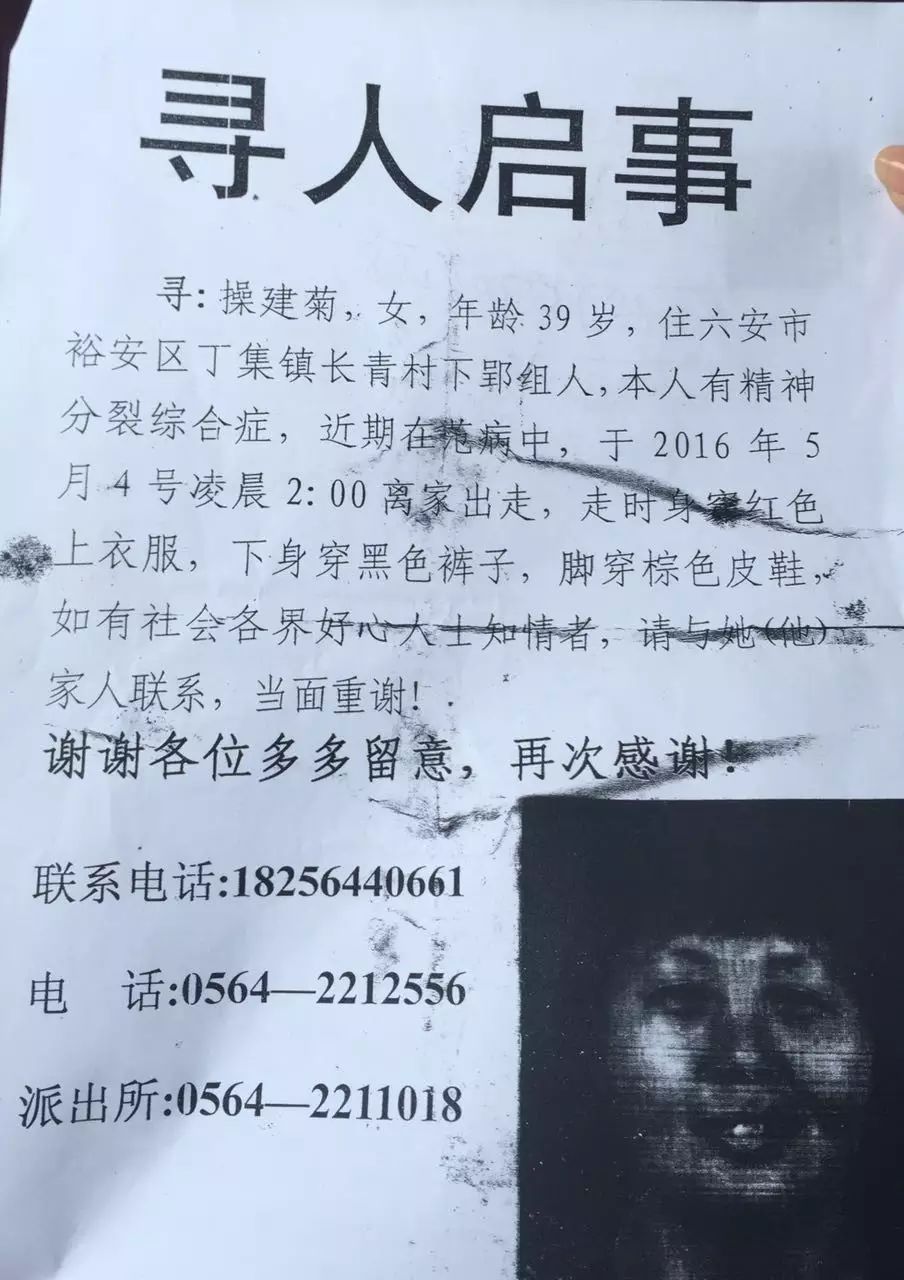 寻人启事
寻：操建菊，女，年龄 39 岁，住六安市
裕安区丁集镇长青村下郢组人，本人有精神
分裂综合症，近期在范病中，于 2016 年 5
月 4 号凌晨 2：00 离家出走，走时身穿红色
上衣服，下身穿黑色裤子，脚穿棕色皮鞋，
如有社会各界好心人士知情者，请与她（他）
家人联系，当面重谢！
谢谢各位多多留意，再次感谢！
联系电话:18256440661
电 话:0564—2212556
派出所:0564—2211018